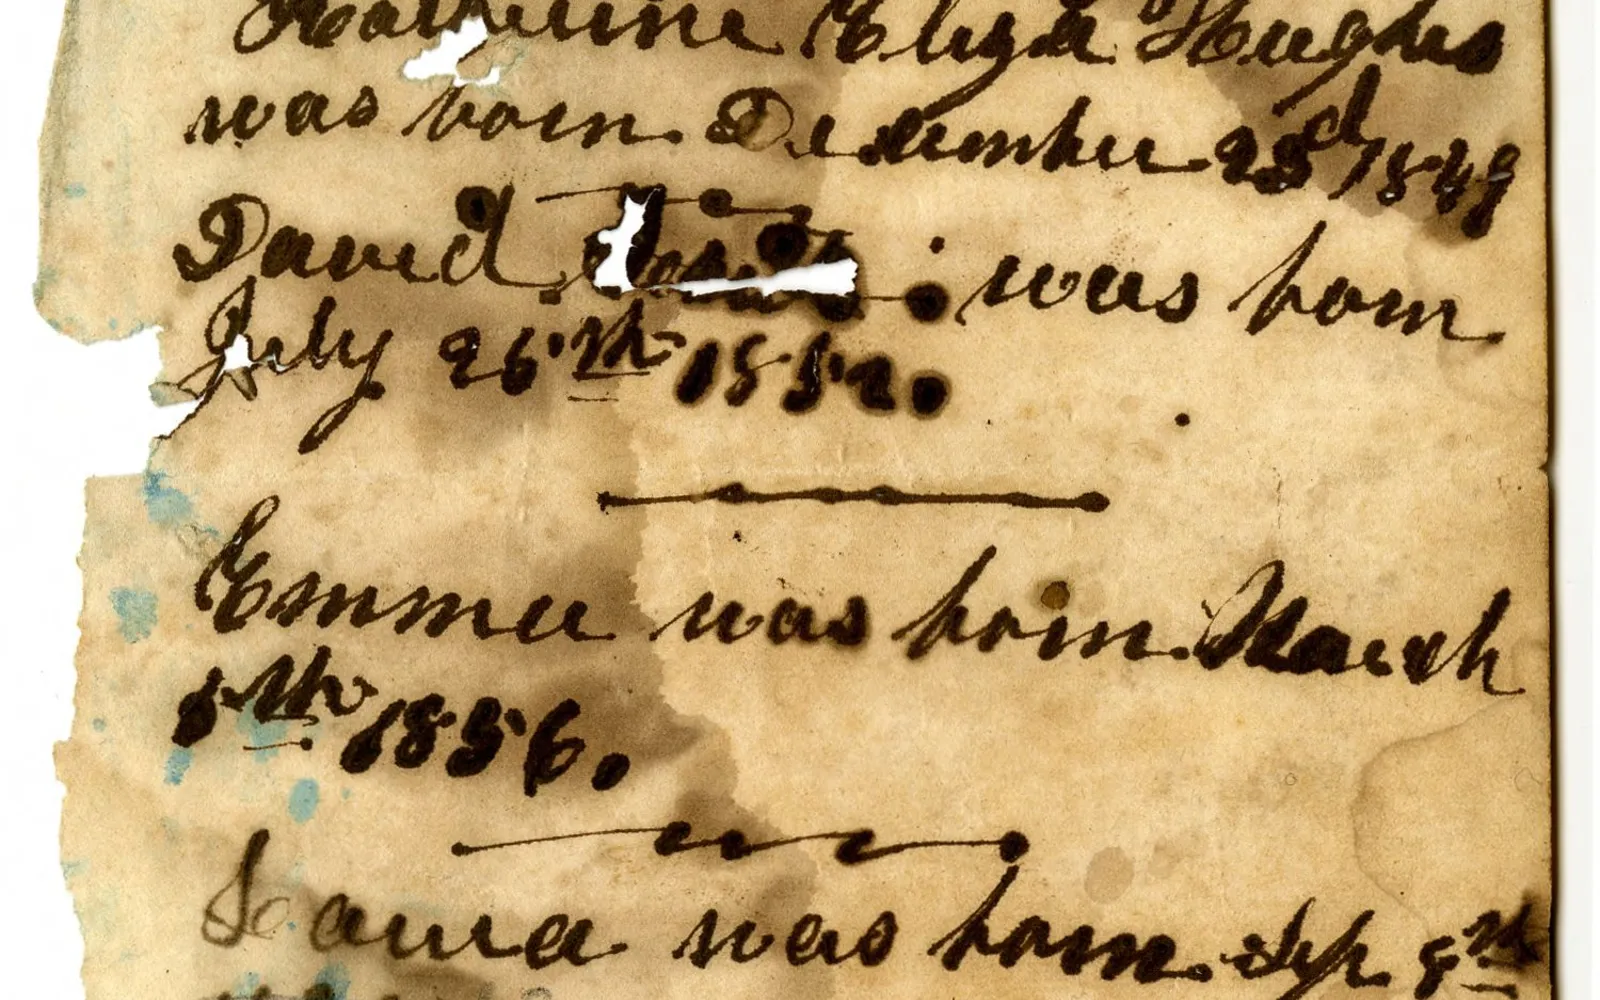 Katherine Eliza Hughes
was born. December 23d 1849
David : was born
July 26th 1852.
Emma was born. March
5th 1856.
Laura was born. Sep 8th